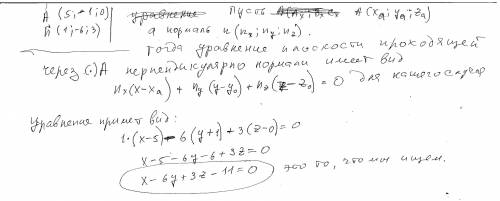 A (5; -1; 0) уравнение Пусть A(xa; ya; za)
n (1; -6; 3) а нормаль n (nx; ny; nz).
Тогда уравнение плоскости проходящей
через (·) A перпендикулярно нормали имеет вид
nx(x-xa) + ny(y-y0) + nz(z-z0) = 0 для нашего случая
уравнение примет вид:
1·(x-5) - 6(y+1) + 3(z-0) = 0
x-5-6y-6+3z=0
x-6y+3z-11=0 это то, что мы ищем.